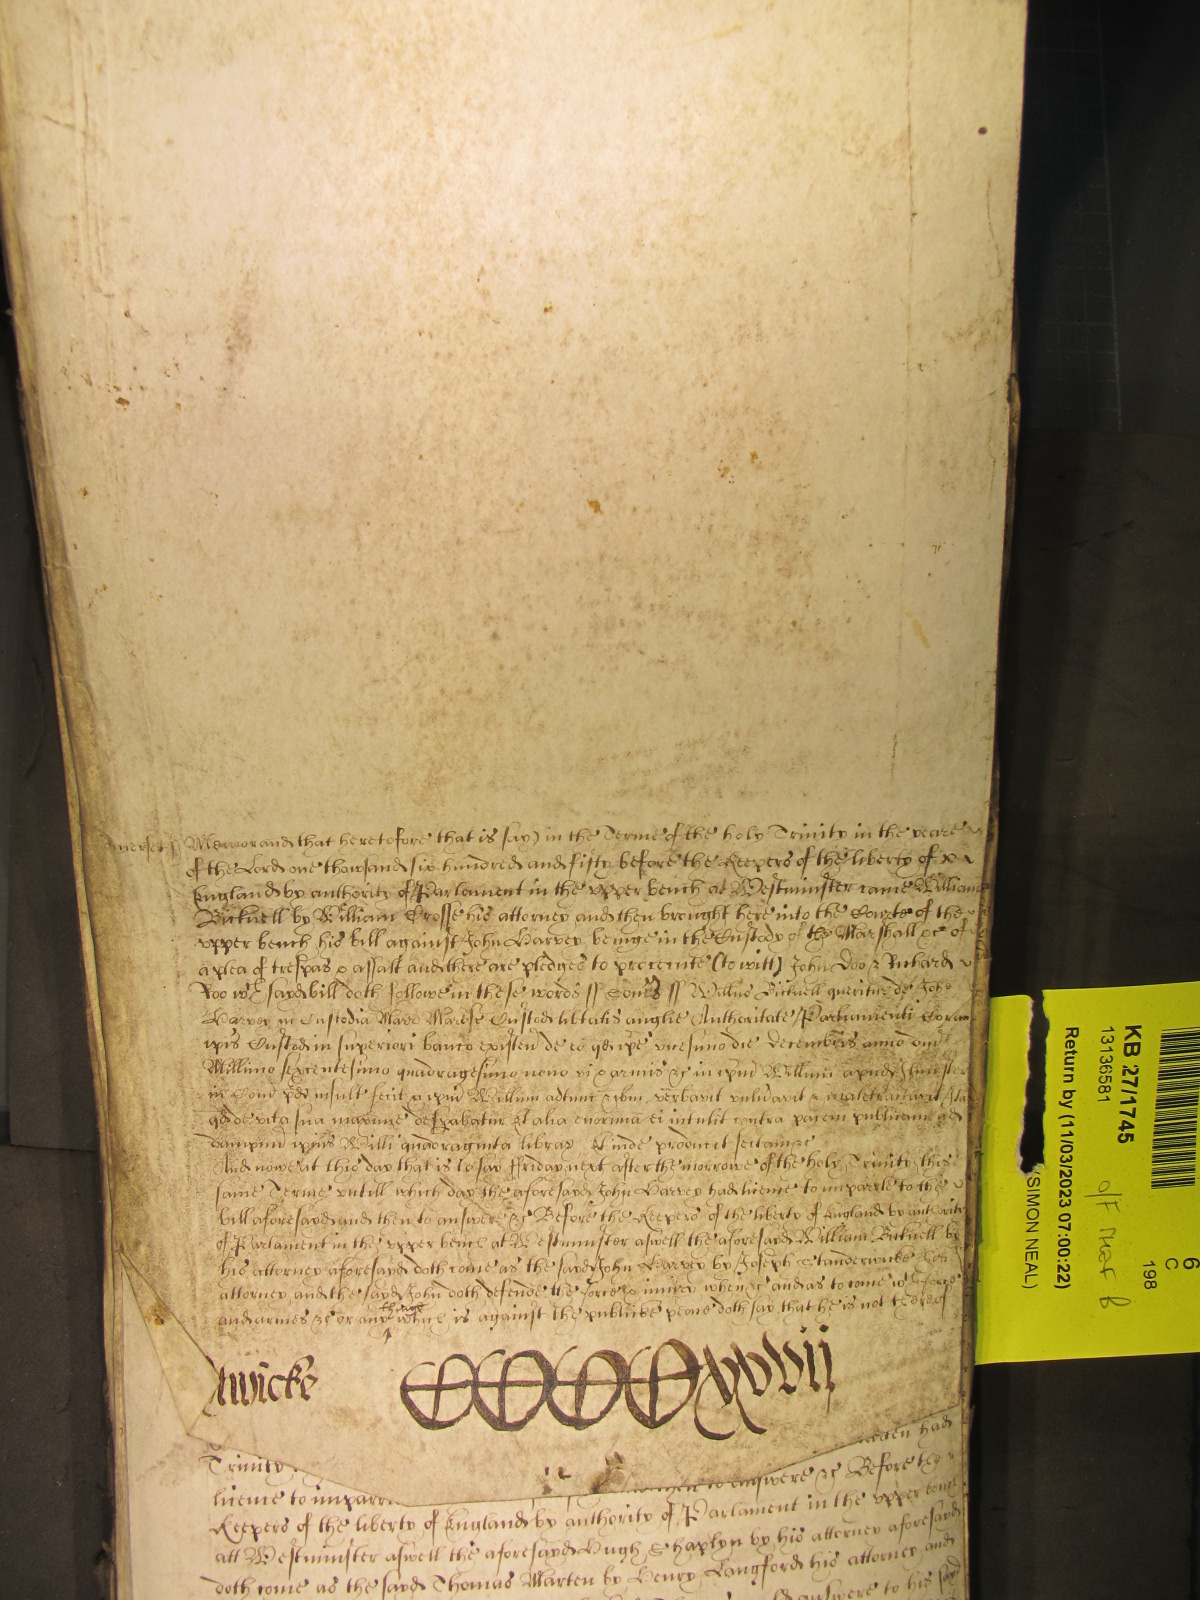 Memorand that heretofore that is say) in the Terme of the holy Trinity in the yeare
of the Lord one thowsand six hundred and fifty before the Keepers of the liberty of
England by authority of Parlament in the upper bench at Westminster came William
Bicknell by William Crosse his attorney and then brought here into the Courte of the
upper bench his bill against John Harvey beinge in the Custody of the Marshall &c of
a plea of trespas & assalt and there are pledges to prosecute (to witt) John Doo & Richard
Roo wch sayd bill doth followe in these words ss Somst ss Willus Bicknell queritur de Johe
Harvey in Custodia Marr Maresc Custod libtatis anglie Authoritate Parliamenti Coram
ipis Custod in superiori banco existen de eo qd ipe vicesimo die decembris anno dni
Millimo sexcentesimo quadragesimo nono vi & armis &c in ipm Willm apud
in Com pd insult fecit & ipm Willum adtunc ibm verbavit vulnavit & maletractavit Ita
qd de vita sua maxime despabatur Et alia enormia ei intulit contra pacem publicam ad
dampnum ipius Willi quadraginta librar Et inde producit sectam &c
And nowe at this day that is to say ffriday next after the morrowe of the holy Trinity this
same Terme untill which day the aforesayd John Harvey had licence to imparle to the
bill aforesayd and then to answere &c Before the Keepers of the liberty of England by authority
of Parlament in the upper bench at Westminster aswell the aforesayd William Bicknell by
his attorney aforesayd doth come as the sayd John Harvey by Joseph Standerwicke his
attorney and the sayd John doth defende the force & iniury when &c and as to come wth force
and armes &c or any thinge which is against the publicke peace doth say that he is not thereof
wicke CCCCxxvii
Trinity had
licence to imparle to answere &c Before the
Keepers of the liberty of England by authority of Parlament in the upper bench
att Westminster aswell the aforesayd Hugh Shaplyn by his attorney aforesayd
doth come as the sayd Thomas Marten by Henry Langford his attorney and
answere to his sayd
KB 27/1745
13136581
Return by (11/03/2023 07:00:22)
(SIMON NEAL)
6
C
198